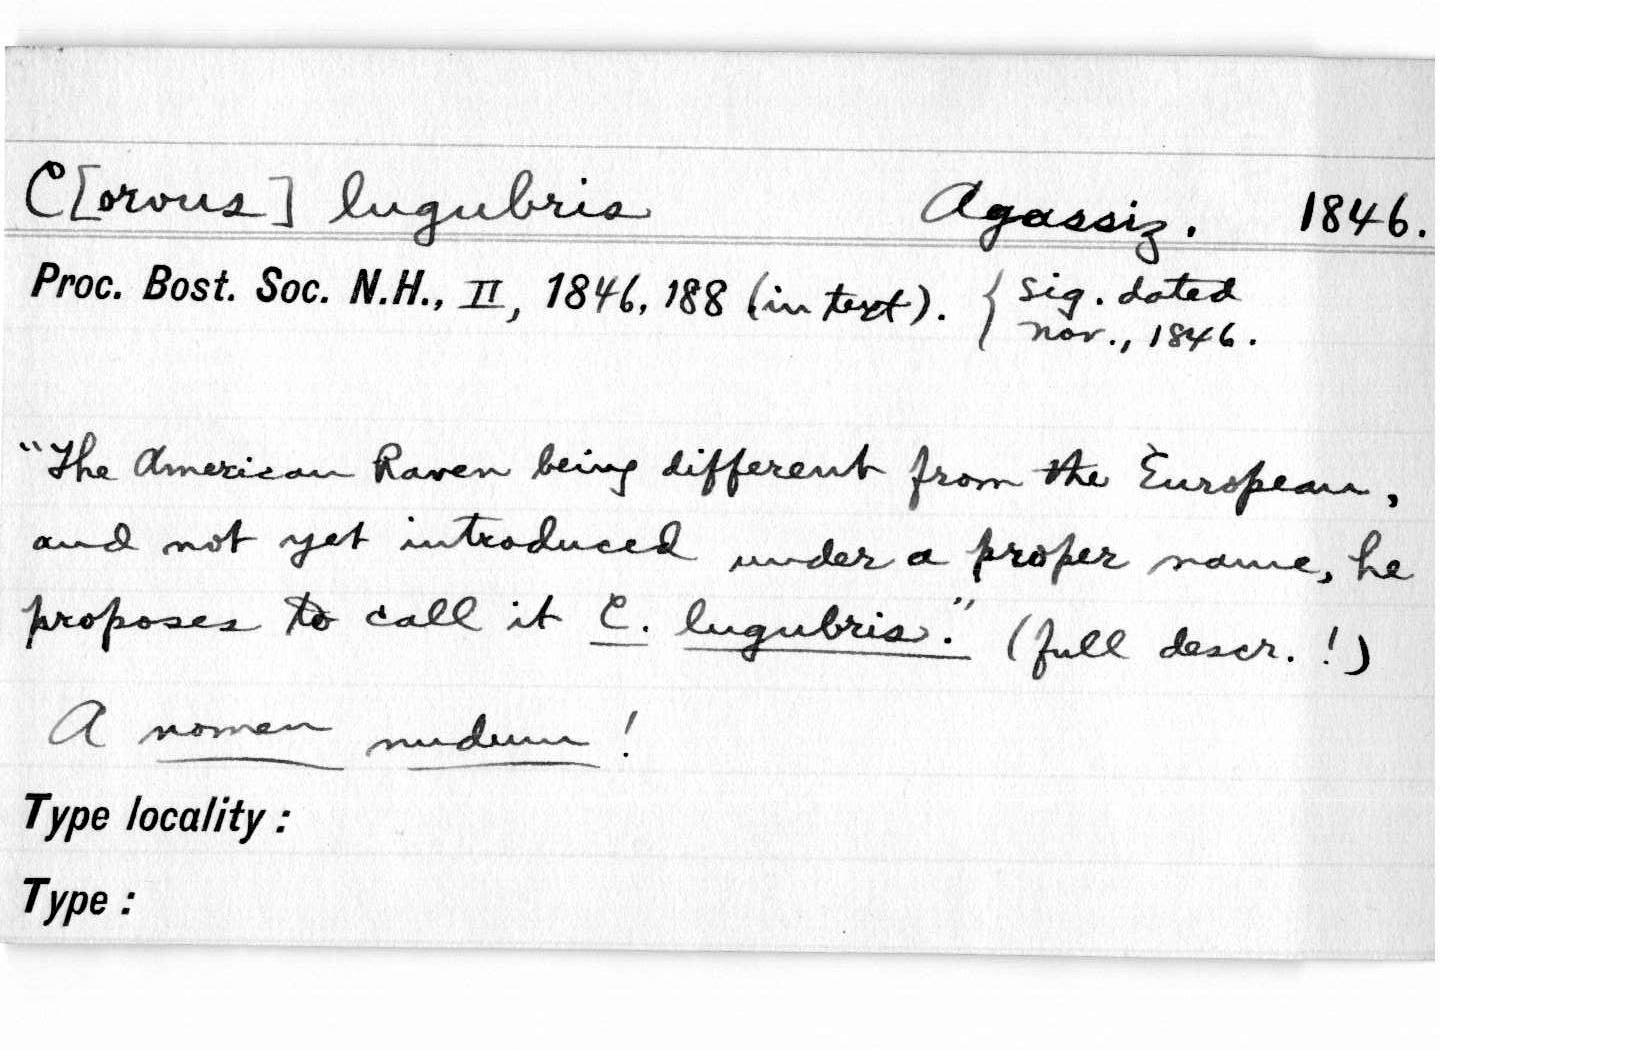 C[orvus] lugubris Agassiz. 1846.
Proc. Bost. Soc. N.H., II, 1846, 188 (in text). { Sig. dated
Nov., 1846.
"The American Raven being different from the European,
and not yet introduced under a proper name, he
proposes to call it C. lugubris." (full descr. !)
A nomen nudum !
Type locality :
Type :